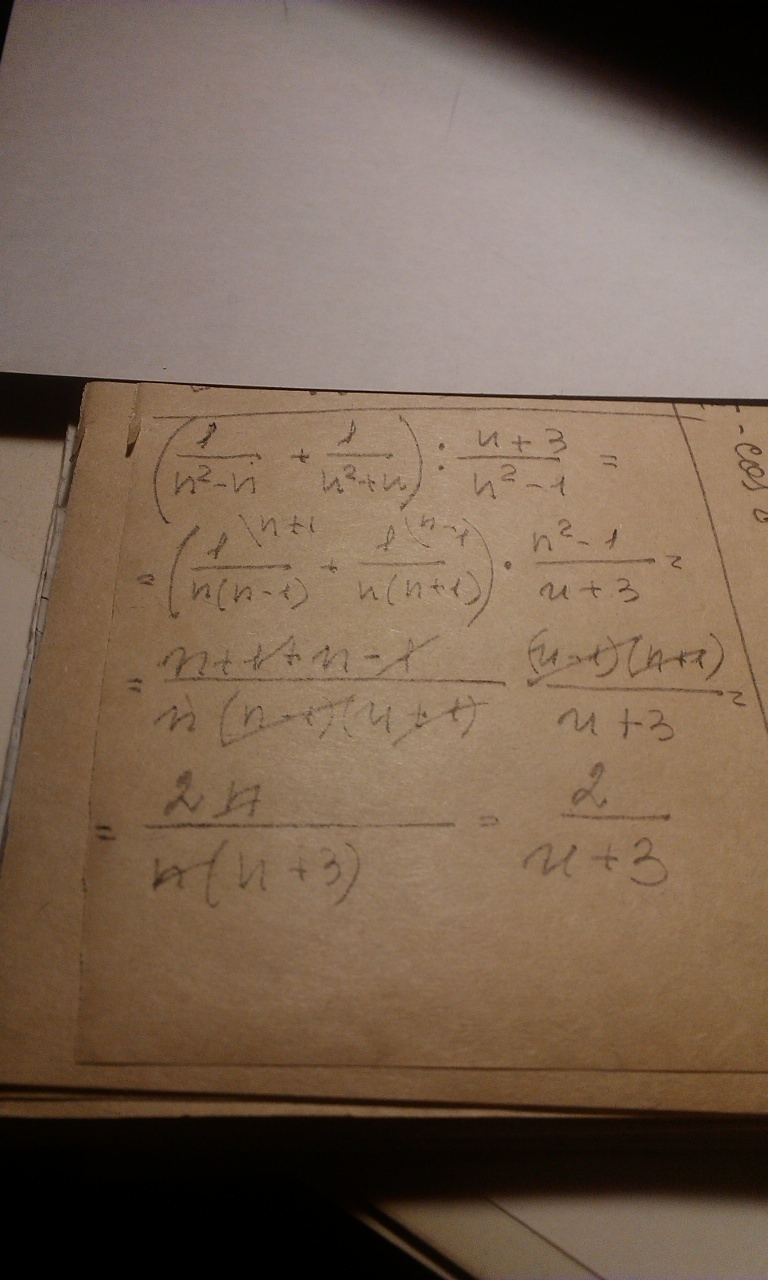 (1/(n²-n) + 1/(n²+n)) : (n+3)/(n²-1) =
= (1\n+1/(n(n-1)) + 1\n-1/(n(n+1))) · (n²-1)/(n+3) =
= (n+1+n-1)/(n(n-1)(n+1)) (n-1)(n+1)/(n+3) =
= 2n/(n(n+3)) = 2/(n+3)
- cos